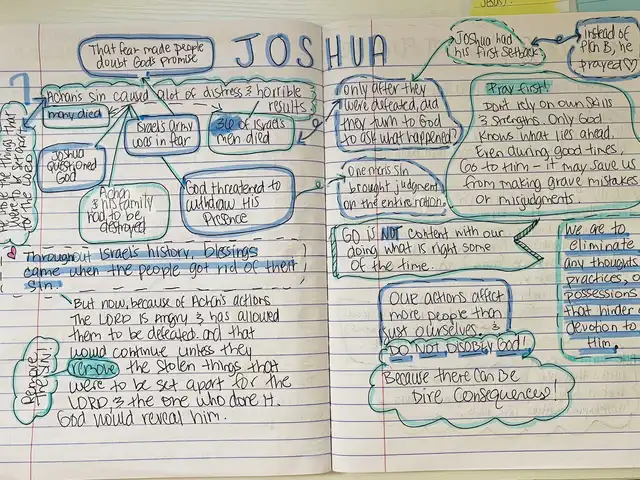 JOSHUA
7
That fear made people
doubt God's promise
Achan's sin caused alot of distress & horrible
results
many died
Israel's army
was in fear
36 of Israel's
men died
Joshua
questioned
God
Achan
& his family
had to be
destroyed
God threatened to
withdraw His
Presence
the things that
were set apart
to the LORD
Throughout Israel's history, blessings
came when the people got rid of their
sin.
But now, because of Achan's actions
The LORD is angry & has allowed
them to be defeated and that
would continue unless they
remove the stolen things that
were to be set apart for the
LORD, & the one who done it.
God would reveal him.
Joshua had
his first setback
Instead of
Plan B, he
prayed
only after they
were defeated, did
they turn to God
to ask what happened?
Pray first!
Don't rely on own skills
& strengths. Only God
knows what lies ahead.
Even during good times,
Go to Him - it may save us
from making grave mistakes
or misjudgments.
One man's sin
brought judgment
on the entire nation.
GD is NOT content with our
doing what is right some
of the time.
We are to
eliminate
any thoughts
practices, or
possessions
that hinder
devotion to
Him.
Our actions affect
more people than
just ourselves. &
DO NOT DISOBEY God!
Because there can be
Dire Consequences!